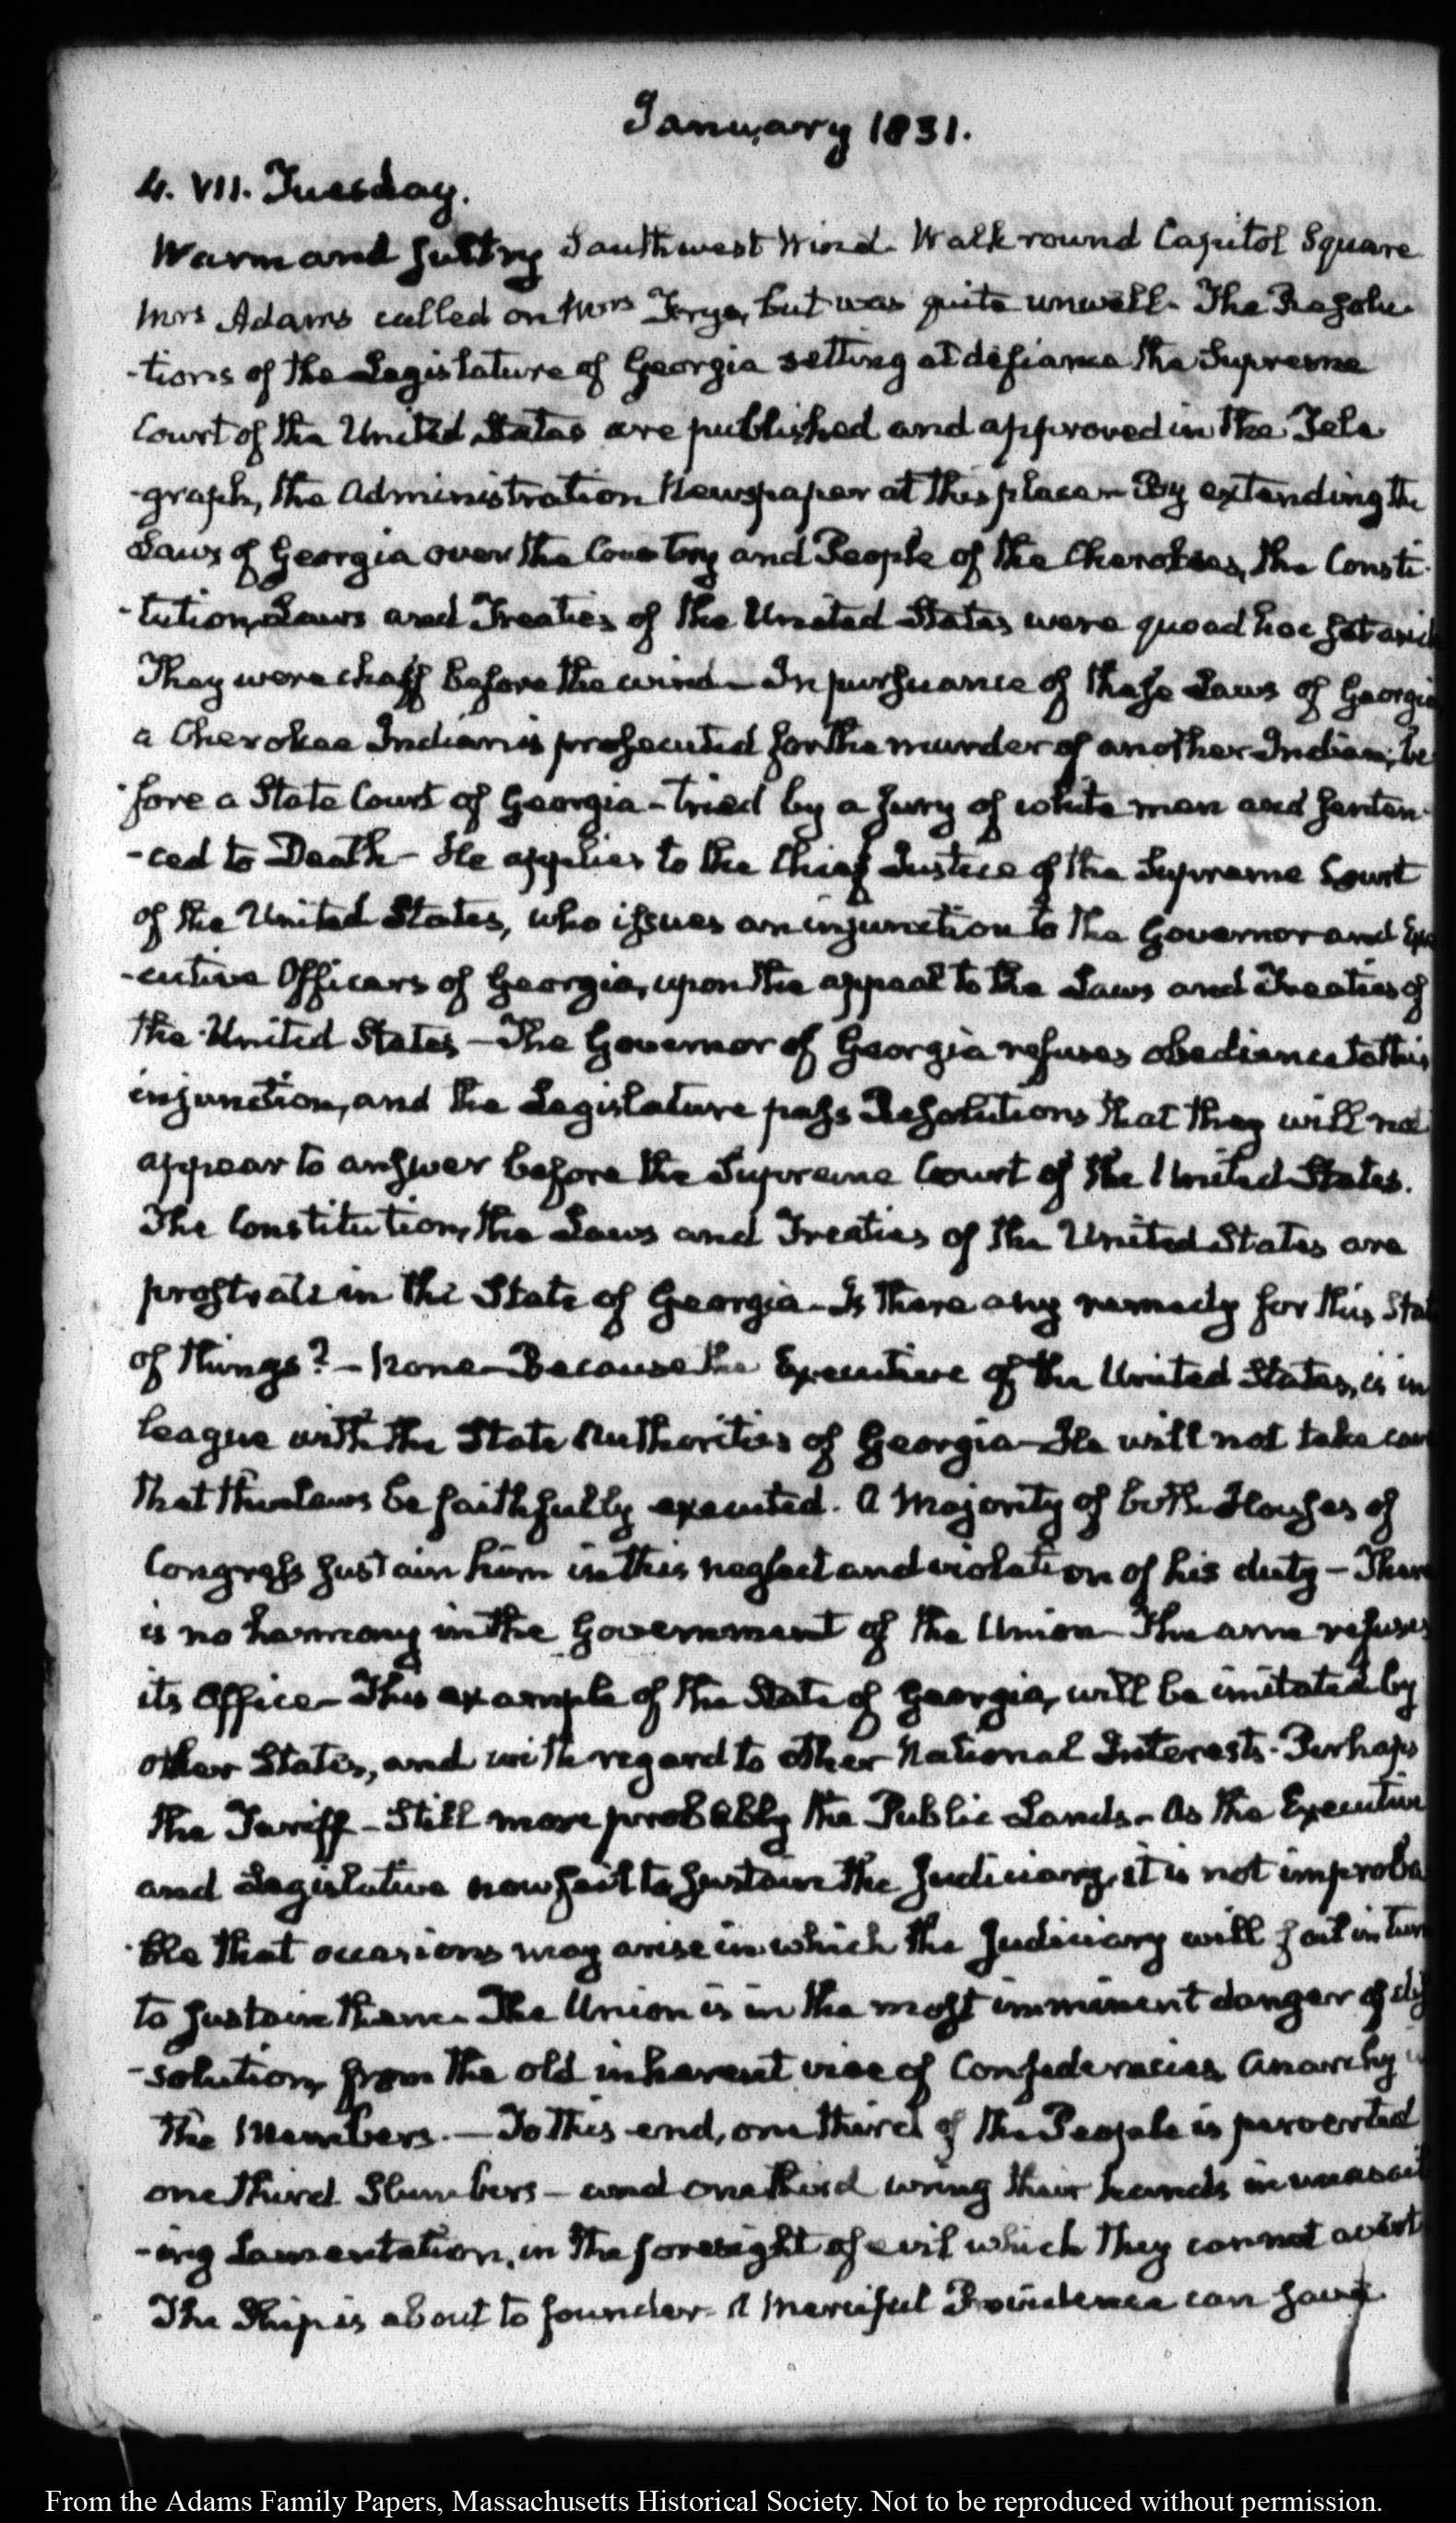 January 1831.
4. VII. Tuesday.
Warm and sultry Southwest Wind. Walk round Capitol Square
Mrs Adams called on Mrs but was quite unwell. The Resolu-
-tions of the Legislature of Georgia setting at defiance the Supreme
Court of the United States are published and approved in the Tele
-graph, the Administration Newspaper at this place — By extending the
Laws of Georgia over the Country and People of the Cherokees, the Consti-
-tution, Laws and Treaties of the United States were quoad hoc set aside
They were chaff before the wind — In pursuance of these Laws of Georgia
a Cherokee Indian is prosecuted for the murder of another Indian, be
-fore a State Court of Georgia — tried by a Jury of white men and senten-
-ced to Death — He applies to the Chief Justice of the Supreme Court
of the United States, who issues an injunction to the Governor and Exe
-cutive Officers of Georgia, upon the appeal to the Laws and Treaties of
the United States — The Governor of Georgia refuses obedience to this
injunction, and the Legislature pass Resolutions that they will not
appear to answer before the Supreme Court of the United States.
The Constitution, the Laws and Treaties of the United States are
prostrate in the State of Georgia — Is there any remedy for this State
of things? — None — Because the Executive of the United States, is in
league with the State Authorities of Georgia — He will not take care
that the laws be faithfully executed. A Majority of both Houses of
Congress sustain him in this neglect and violation of his duty — There
is no harmony in the Government of the Union — The arm refuses
its Office — This example of the State of Georgia, will be imitated by
other States, and with regard to other National Interests — Perhaps
the Tariff — Still more probably the Public Lands — As the Executive
and Legislative now fail to sustain the Judiciary, it is not improba
-ble that occasions may arise in which the Judiciary will fail in turn
to sustain them — The Union is in the most imminent danger of dis
-solution, from the old inherent vice of Confederacies, Anarchy in
the Members. — To this end, one third of the People is perverted
one third Slumbers — and one third wring their hands in unavail
-ing Lamentation, in the foresight of evil which they cannot avert
The Ship is about to founder. A Merciful Providence can save
From the Adams Family Papers, Massachusetts Historical Society. Not to be reproduced without permission.